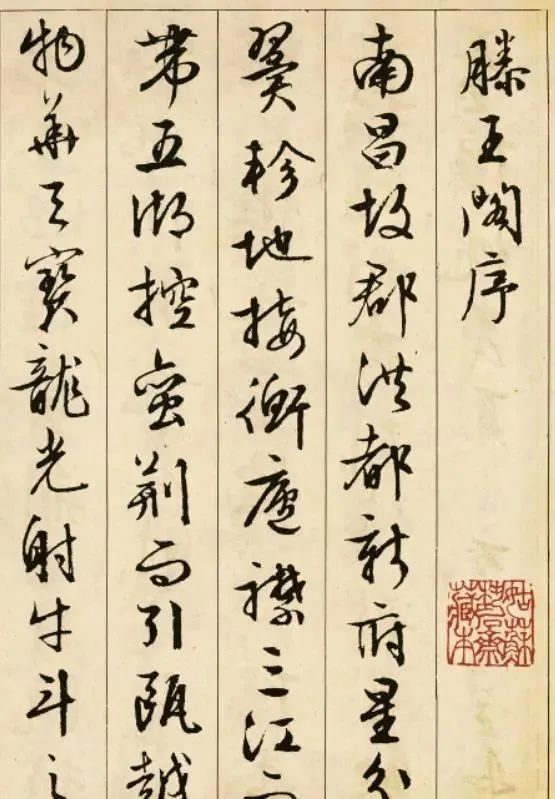 滕王閣序
南昌故郡洪都新府星分
翼軫地接衡廬襟三江而
帶五湖控蠻荊而引甌越
物華天寶龍光射牛斗之
姑蘇
藏本